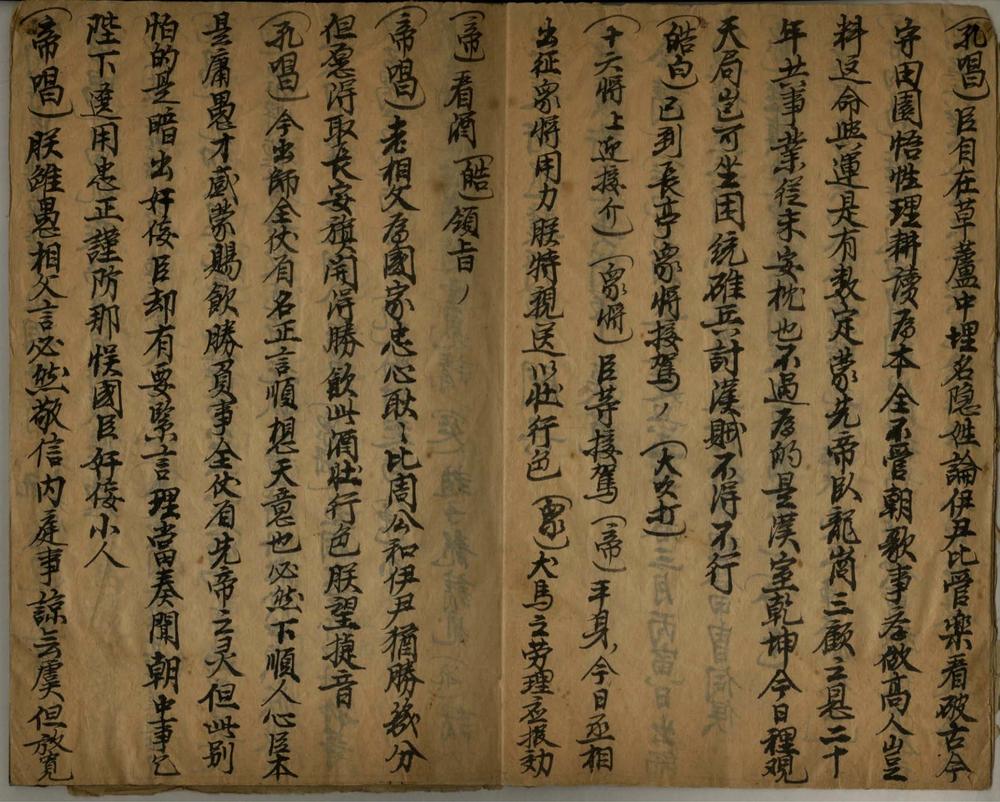 (孔唱)臣自在草蘆中埋名隐姓論伊尹比管楽看破古今
守田園悟性理耕读為本全不管朝歌事孝做高人豈
料这命與運是有数定蒙先帝臥龍崗三顧之恩二十
年共事業從未安枕也不過為的是漢室乾坤今日裡观
天局岂可坐困統雄兵討漢賊不得不行
(皓白)已到長亭眾將接駕(大吹打)
(十六將上迎接介)(眾將)臣等接駕(帝)平身今日丞相
出征眾將用力朕特親送以壮行色(眾)犬馬之劳理应报効
(帝)看酒(皓)領旨
(帝唱)老相父為國家忠心耿〻比周公和伊尹猶勝幾分
但愿得取長安旗開得勝飲此酒壮行色朕望捷音
(孔唱)今出師全仗有名正言順想天意也必然下順人心臣本
是庸愚才感蒙賜飲勝負事全仗有先帝之灵但此别
怕的是暗出奸佞臣却有要緊言理當奏聞朝中事乞
陛下選用忠正謹防那悞國臣奸佞小人
(帝唱)朕雖愚相父言必然敬信内庭事諒云虞但放寬